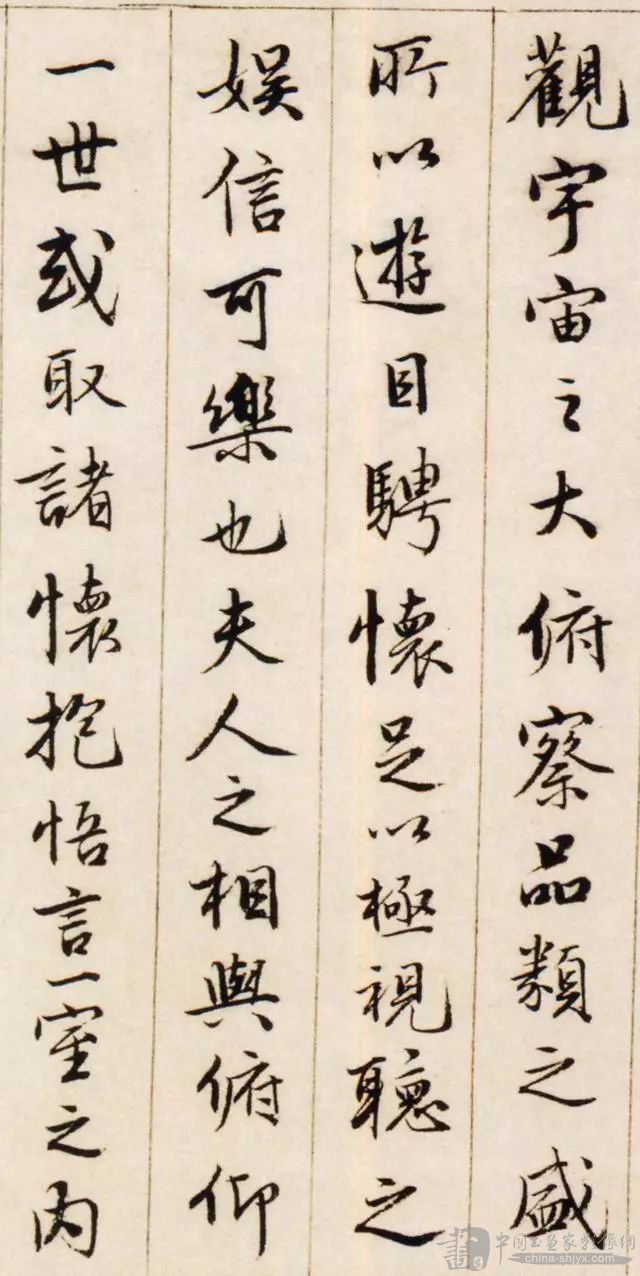 觀宇宙之大俯察品類之盛
所以遊目騁懷足以極視聽之
娱信可樂也夫人之相與俯仰
一世或取諸懷抱悟言一室之内
書
中國书画家影像網
china-shjyx.com